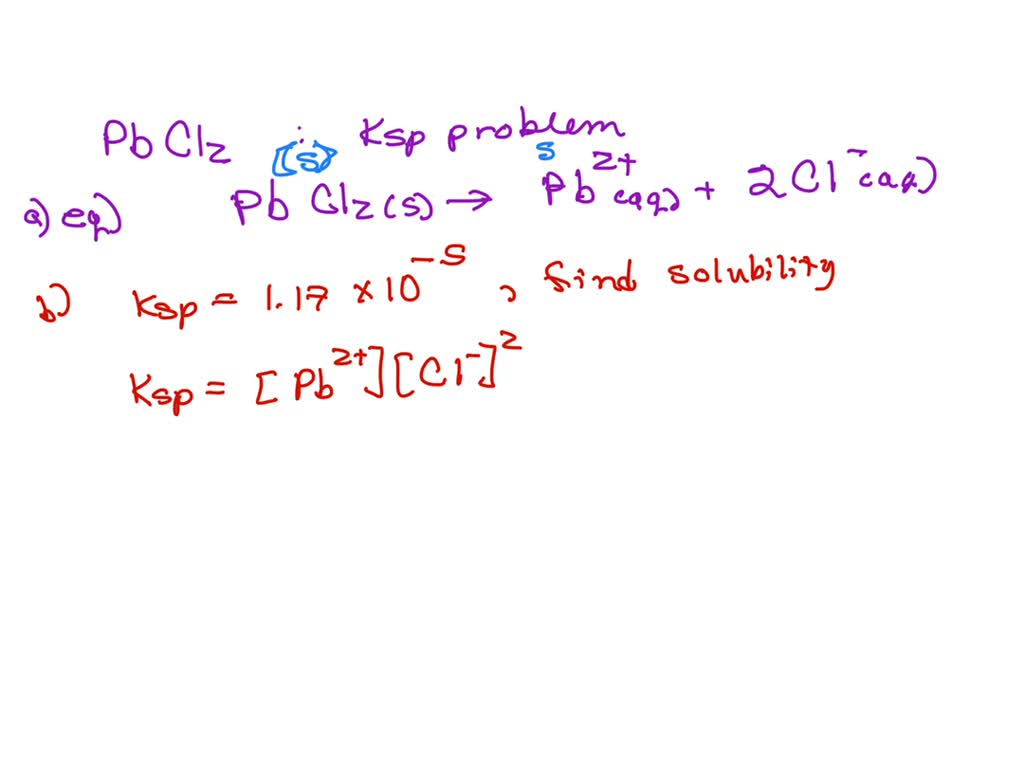 PbCl₂ : Ksp problem
(s) s
a) eq) PbCl₂(s) → Pb²⁺(aq) + 2Cl⁻(aq)
b) Ksp = 1.17 × 10⁻⁵ , find solubility
Ksp = [Pb²⁺][Cl⁻]²